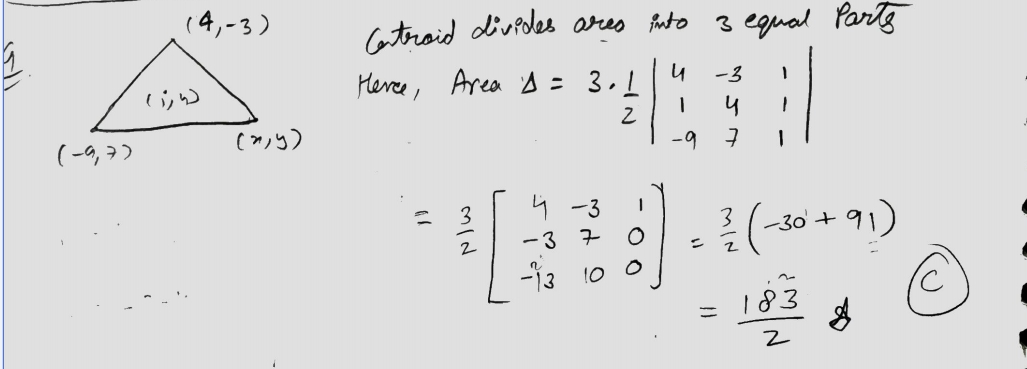 (4,-3)
(1,4)
(-9,7)
(x,y)
Centroid divides area into 3 equal Parts
Hence, Area Δ = 3·1/2 | 4 -3 1
1 4 1
-9 7 1 |
= 3/2 [ 4 -3 1
-3 7 0
-13 10 0 ] = 3/2 (-30 + 91)
= 183/2
C